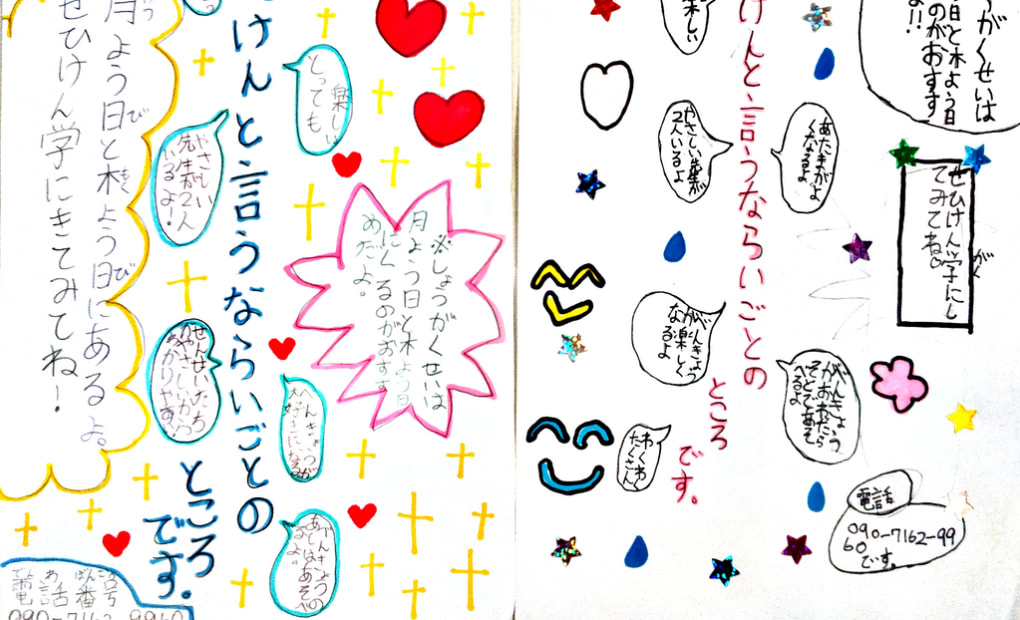 月よう日と木よう日にあるよ。
ぜひけん学にきてみてね!
けんと言うならいごとの
ところ
です。
楽しい
とっても
やさしい
先生が2人
いるよ!
※しょうがくせいは
月よう日と木よう日
にくるのがおすす
めだよ。
せんせいたち
べんきょうが
大好きになる
べんきょうの
電話番号
090-7162-9960
けんと言うならいごとの
ところ
です。
楽しい
やさしい先生が
2人いるよ
あたまがよ
くなるよ
べんきょう
が楽しく
なるよ
べんきょう
がおわったら
そとであそ
べるよ
わくわ
たくさん
がくせいは
日と木よう日
のがおすす
よ!!
ぜひけん学にし
てみてね
電話
090-7162-99
60
です。